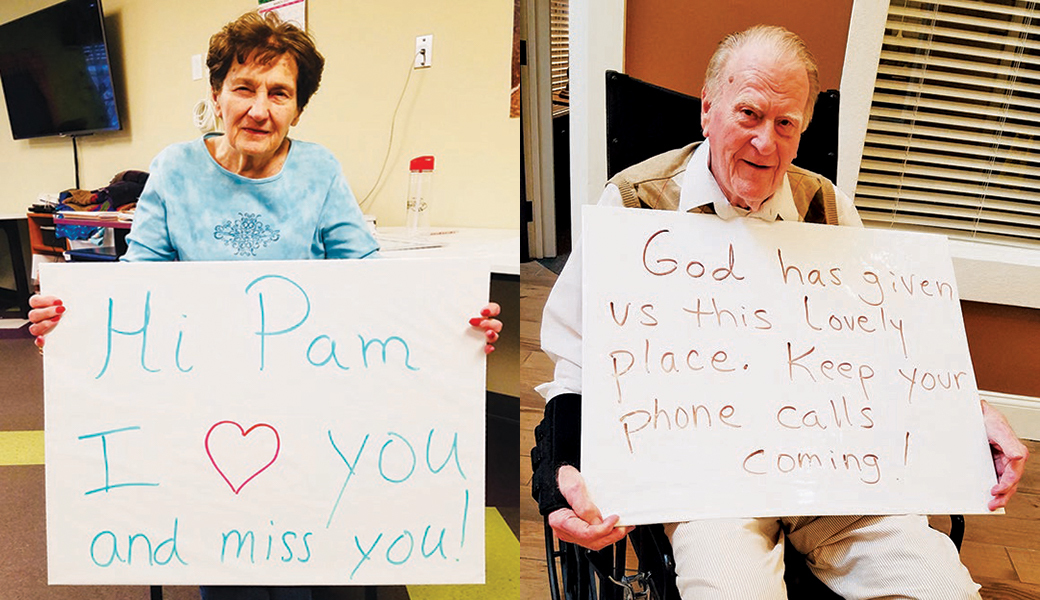 Hi Pam
I ♡ you
and miss you!
God has given
us this lovely
place. Keep your
phone calls
coming!